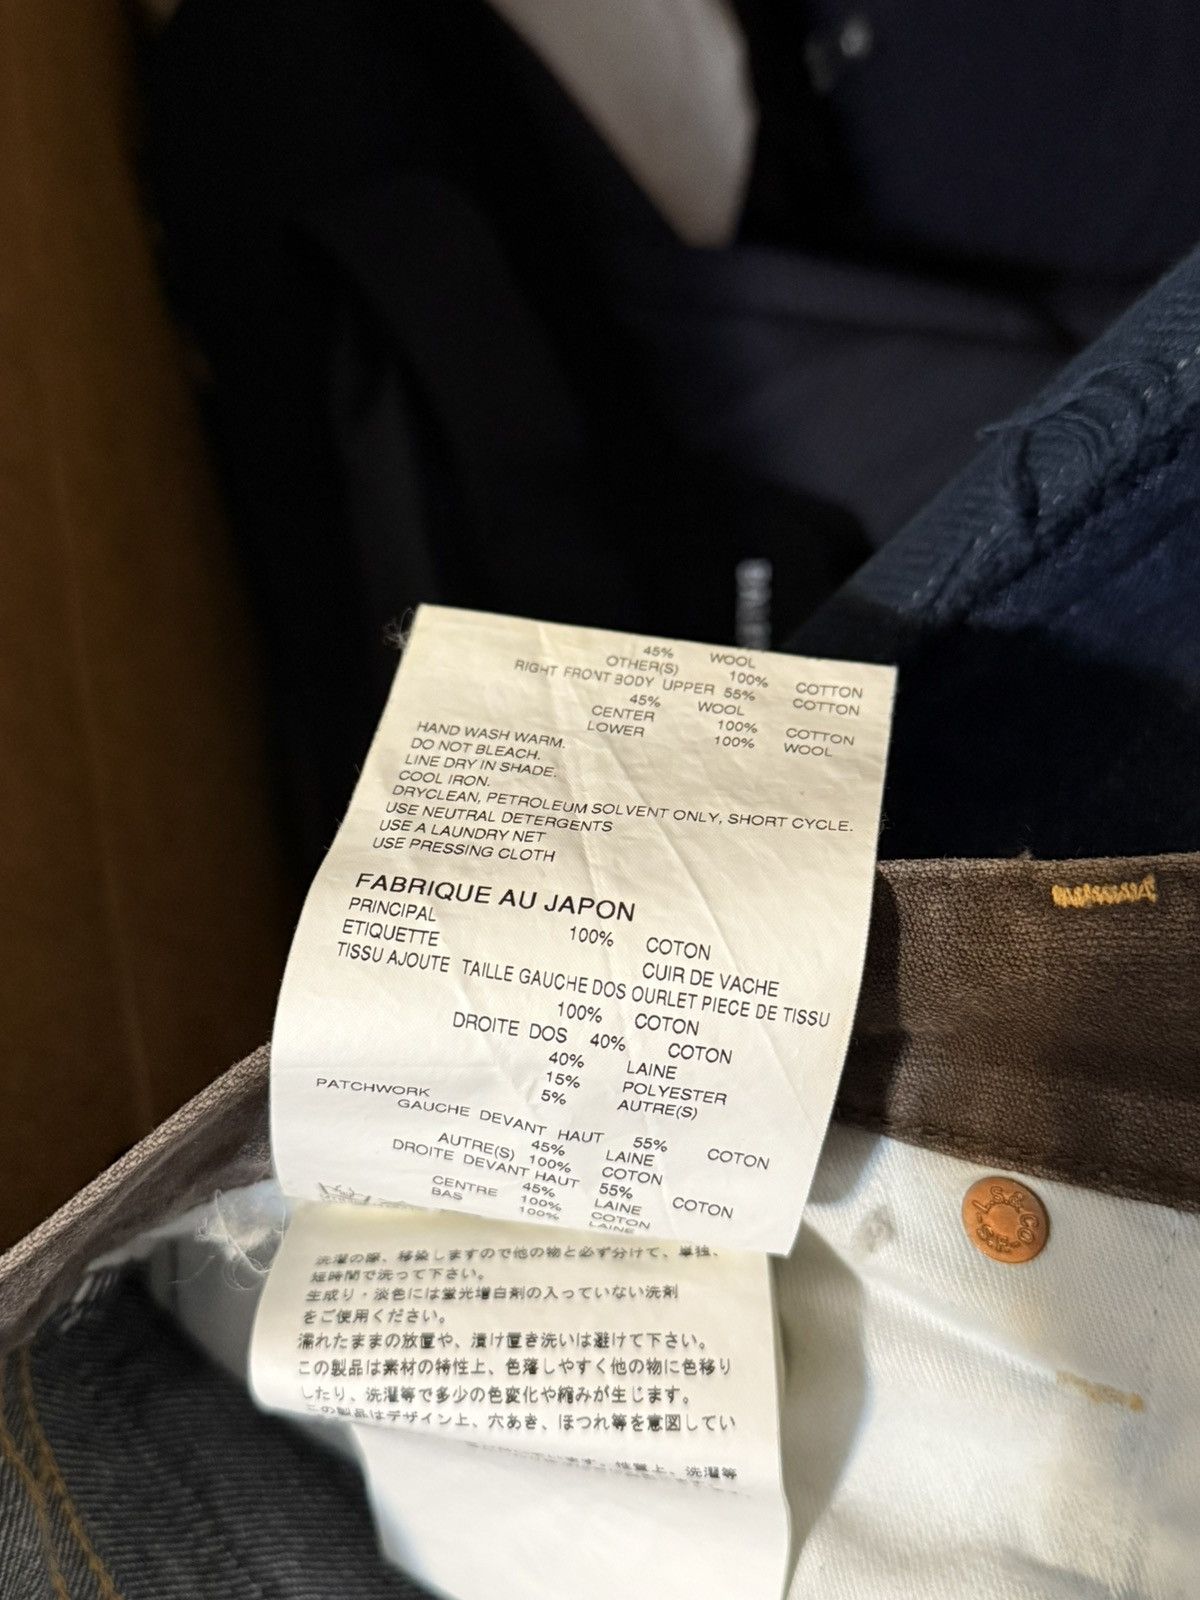 45% WOOL
OTHER(S) 100% COTTON
RIGHT FRONT BODY UPPER 55% COTTON
45% WOOL
CENTER 100% COTTON
LOWER 100% WOOL
HAND WASH WARM.
DO NOT BLEACH.
LINE DRY IN SHADE.
COOL IRON.
DRYCLEAN, PETROLEUM SOLVENT ONLY, SHORT CYCLE.
USE NEUTRAL DETERGENTS
USE A LAUNDRY NET
USE PRESSING CLOTH
FABRIQUE AU JAPON
PRINCIPAL 100% COTON
ETIQUETTE CUIR DE VACHE
TISSU AJOUTE TAILLE GAUCHE DOS OURLET PIECE DE TISSU
100% COTON
DROITE DOS 40% COTON
40% LAINE
15% POLYESTER
5% AUTRE(S)
PATCHWORK
GAUCHE DEVANT HAUT 55% COTON
45% LAINE
AUTRE(S) 100% COTON
DROITE DEVANT HAUT 55% COTON
45% LAINE
CENTRE 100% COTON
BAS 100% LAINE
洗濯の際、移染しますので他の物と必ず分けて、単独、
短時間で洗って下さい。
生成り・淡色には蛍光増白剤の入っていない洗剤
をご使用ください。
濡れたままの放置や、漬け置き洗いは避けて下さい。
この製品は素材の特性上、色落しやすく他の物に色移り
したり、洗濯等で多少の色変化や縮みが生じます。
この製品はデザイン上、穴あき、ほつれ等を意図してい
洗濯等
L.S.& CO
S.F.